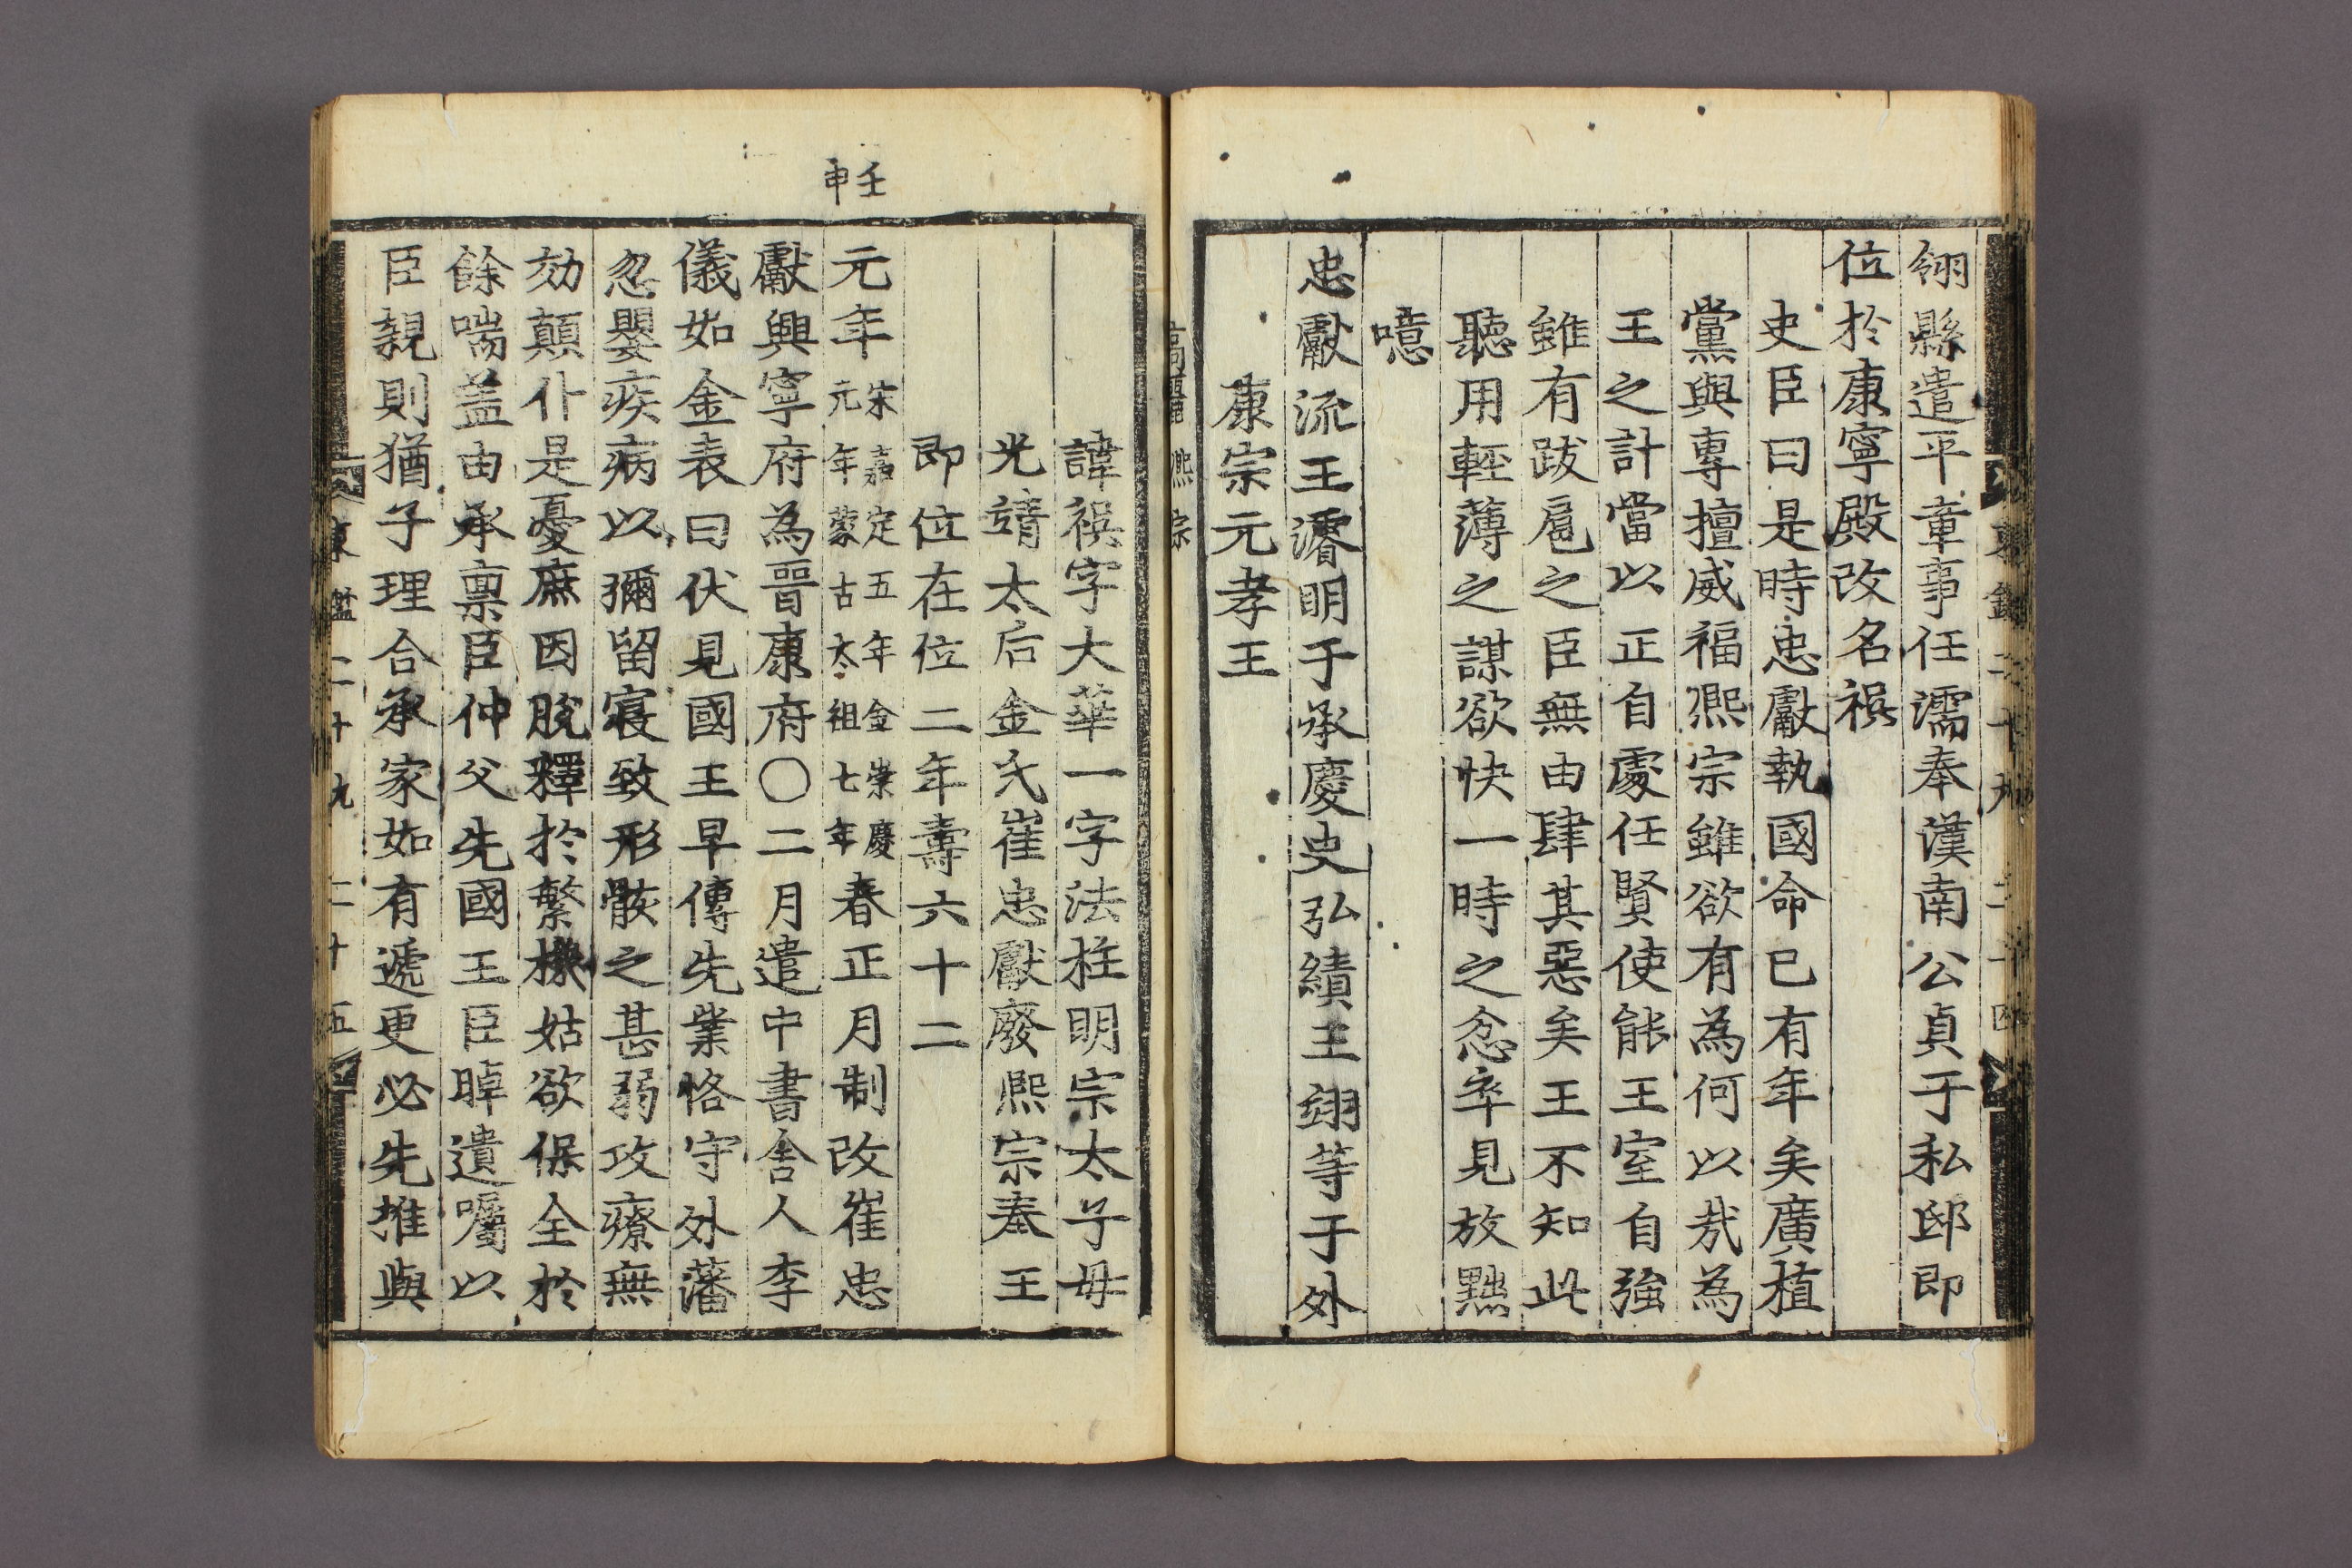 翎縣遣平章事任濡奉漢南公貞于私邸即
位於康寧殿改名祦
史臣曰是時忠獻執國命已有年矣廣植
黨與專擅威福熙宗雖欲有為何以㦲為
王之計當以正自處任賢使能王室自強
雖有跋扈之臣無由肆其惡矣王不知此
聽用輕薄之謀欲快一時之忿卒見放黜
噫
忠獻流王濬明于承慶史弘績王翊等于外
康宗元孝王
高麗熙宗
壬申
諱祦字大華一字法柱明宗太子母
光靖太后金氏崔忠獻廢熙宗奉王
即位在位二年壽六十二
元年宋嘉定五年金崇慶元年蒙古太祖七年春正月制改崔忠
獻興寧府為晉康府〇二月遣中書舍人李
儀如金表曰伏見國王早傳先業恪守外藩
忽嬰疾病以彌留寢致形骸之甚弱攻療無
効顛仆是憂庶因脫釋於繁機姑欲保全於
餘喘盖由承禀臣仲父先國王臣晫遺囑以
臣親則猶子理合承家如有遞更必先推與
東鑑二十九 二十五